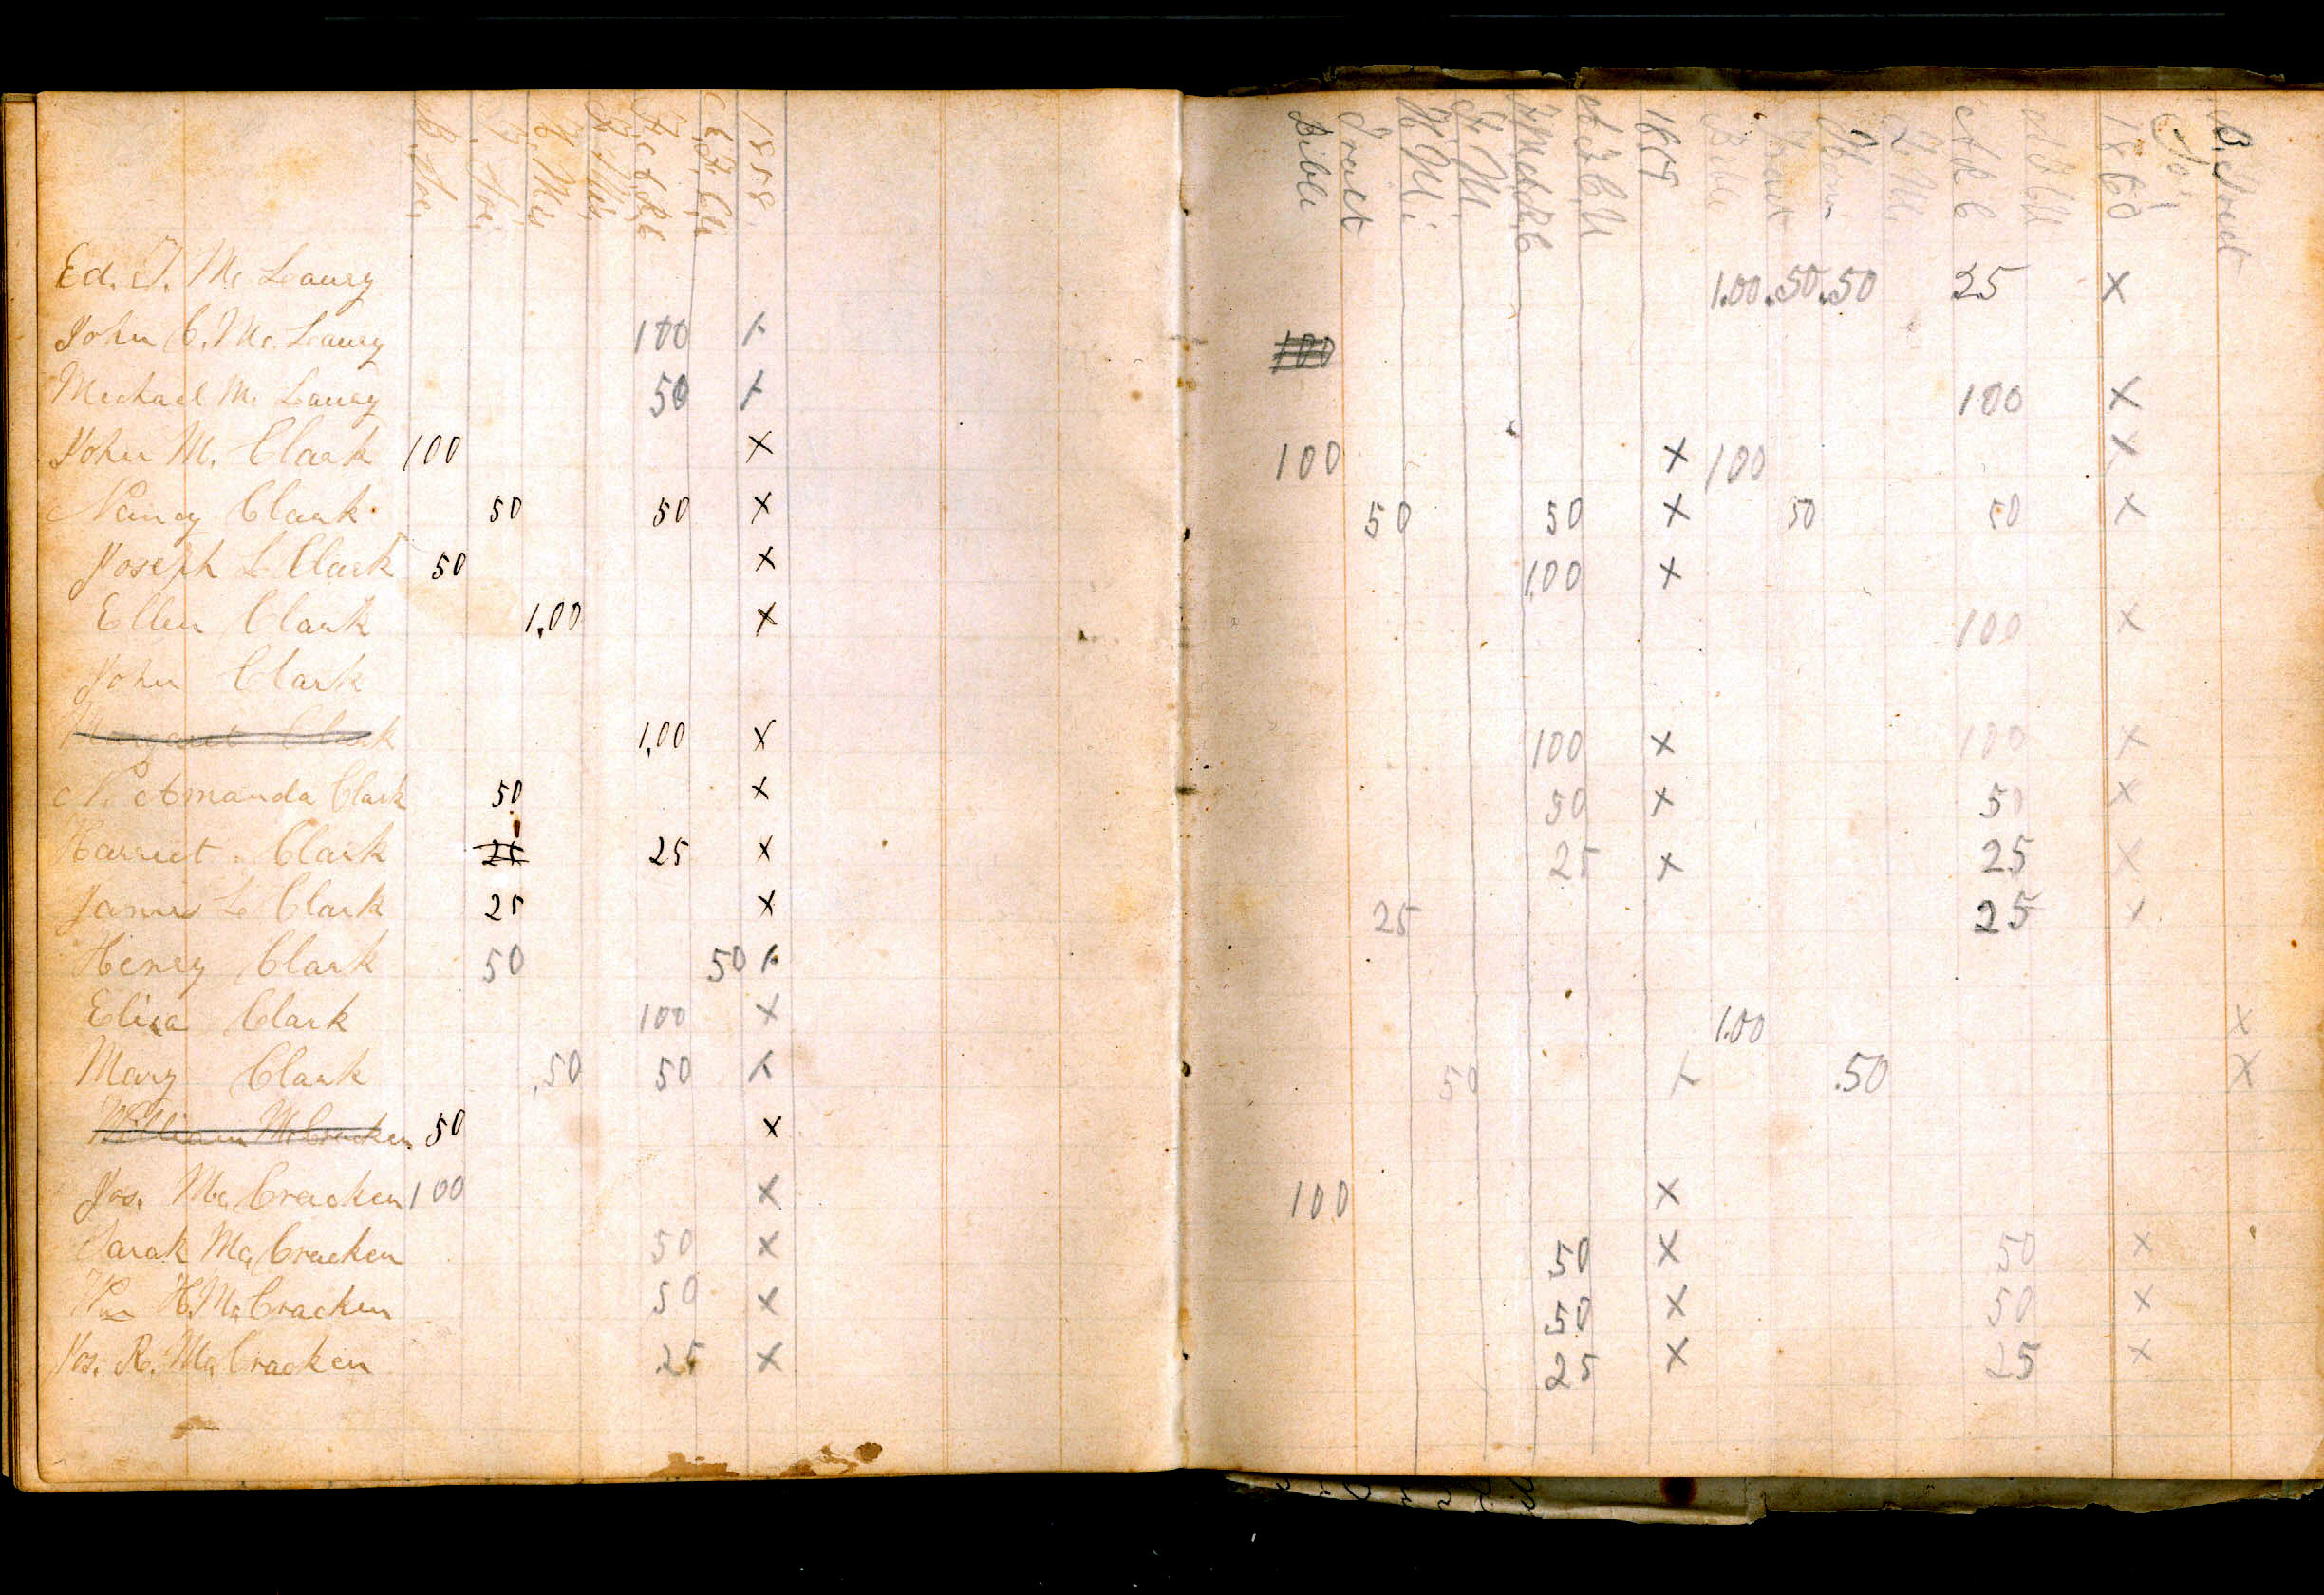 B. Soc. T. Soc. H. Mis F. Mis. F. C & R. C C. & F. Ch 1858. Bible Tract H. Mi. F. M. F. M & A R C A & F. C U 1859 Bible Tract Home F. Mi A R C A & F C U 1860 Soc B. Tract
Ed. T. Mc Laury 1.00 .50 .50 25 X
John C. Mc. Laury 100 X 100
Michael Mc Laury 50 X 100 X
John M. Clark 100 X 100 X 100 X
Nancy Clark 50 50 X 50 50 X 50 50 X
Joseph L Clark 50 X 1.00 X
Ellen Clark 1.00 X 100 X
John Clark
Margaret Clark 1.00 X 100 X 100 X
N. Amanda Clark 50 X 50 X 50 X
Harriet Clark 25 25 X 25 X 25 X
James L Clark 25 X 25 25 X
Henry Clark 50 50 X
Eliza Clark 100 X 1.00 X
Mary Clark .50 50 X 50 X .50 X
William McCracken 50 X
Jos. Mc Cracken 100 X 100 X
Sarah Mc Cracken 50 X 50 X 50 X
Wm H. Mc Cracken 50 X 50 X 50 X
Jos. R. Mc Cracken 25 X 25 X 25 X